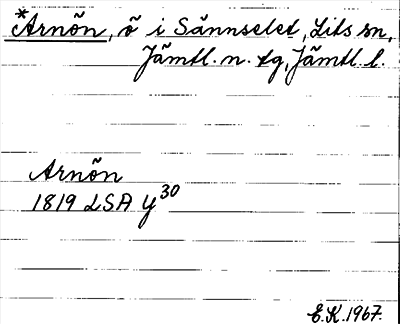 *Arnön, ö i Sännselet, Lits sn,
Jämtl. n. tg, Jämtl. l.
Arnön
1819 LSA Y30
E.K. 1967.